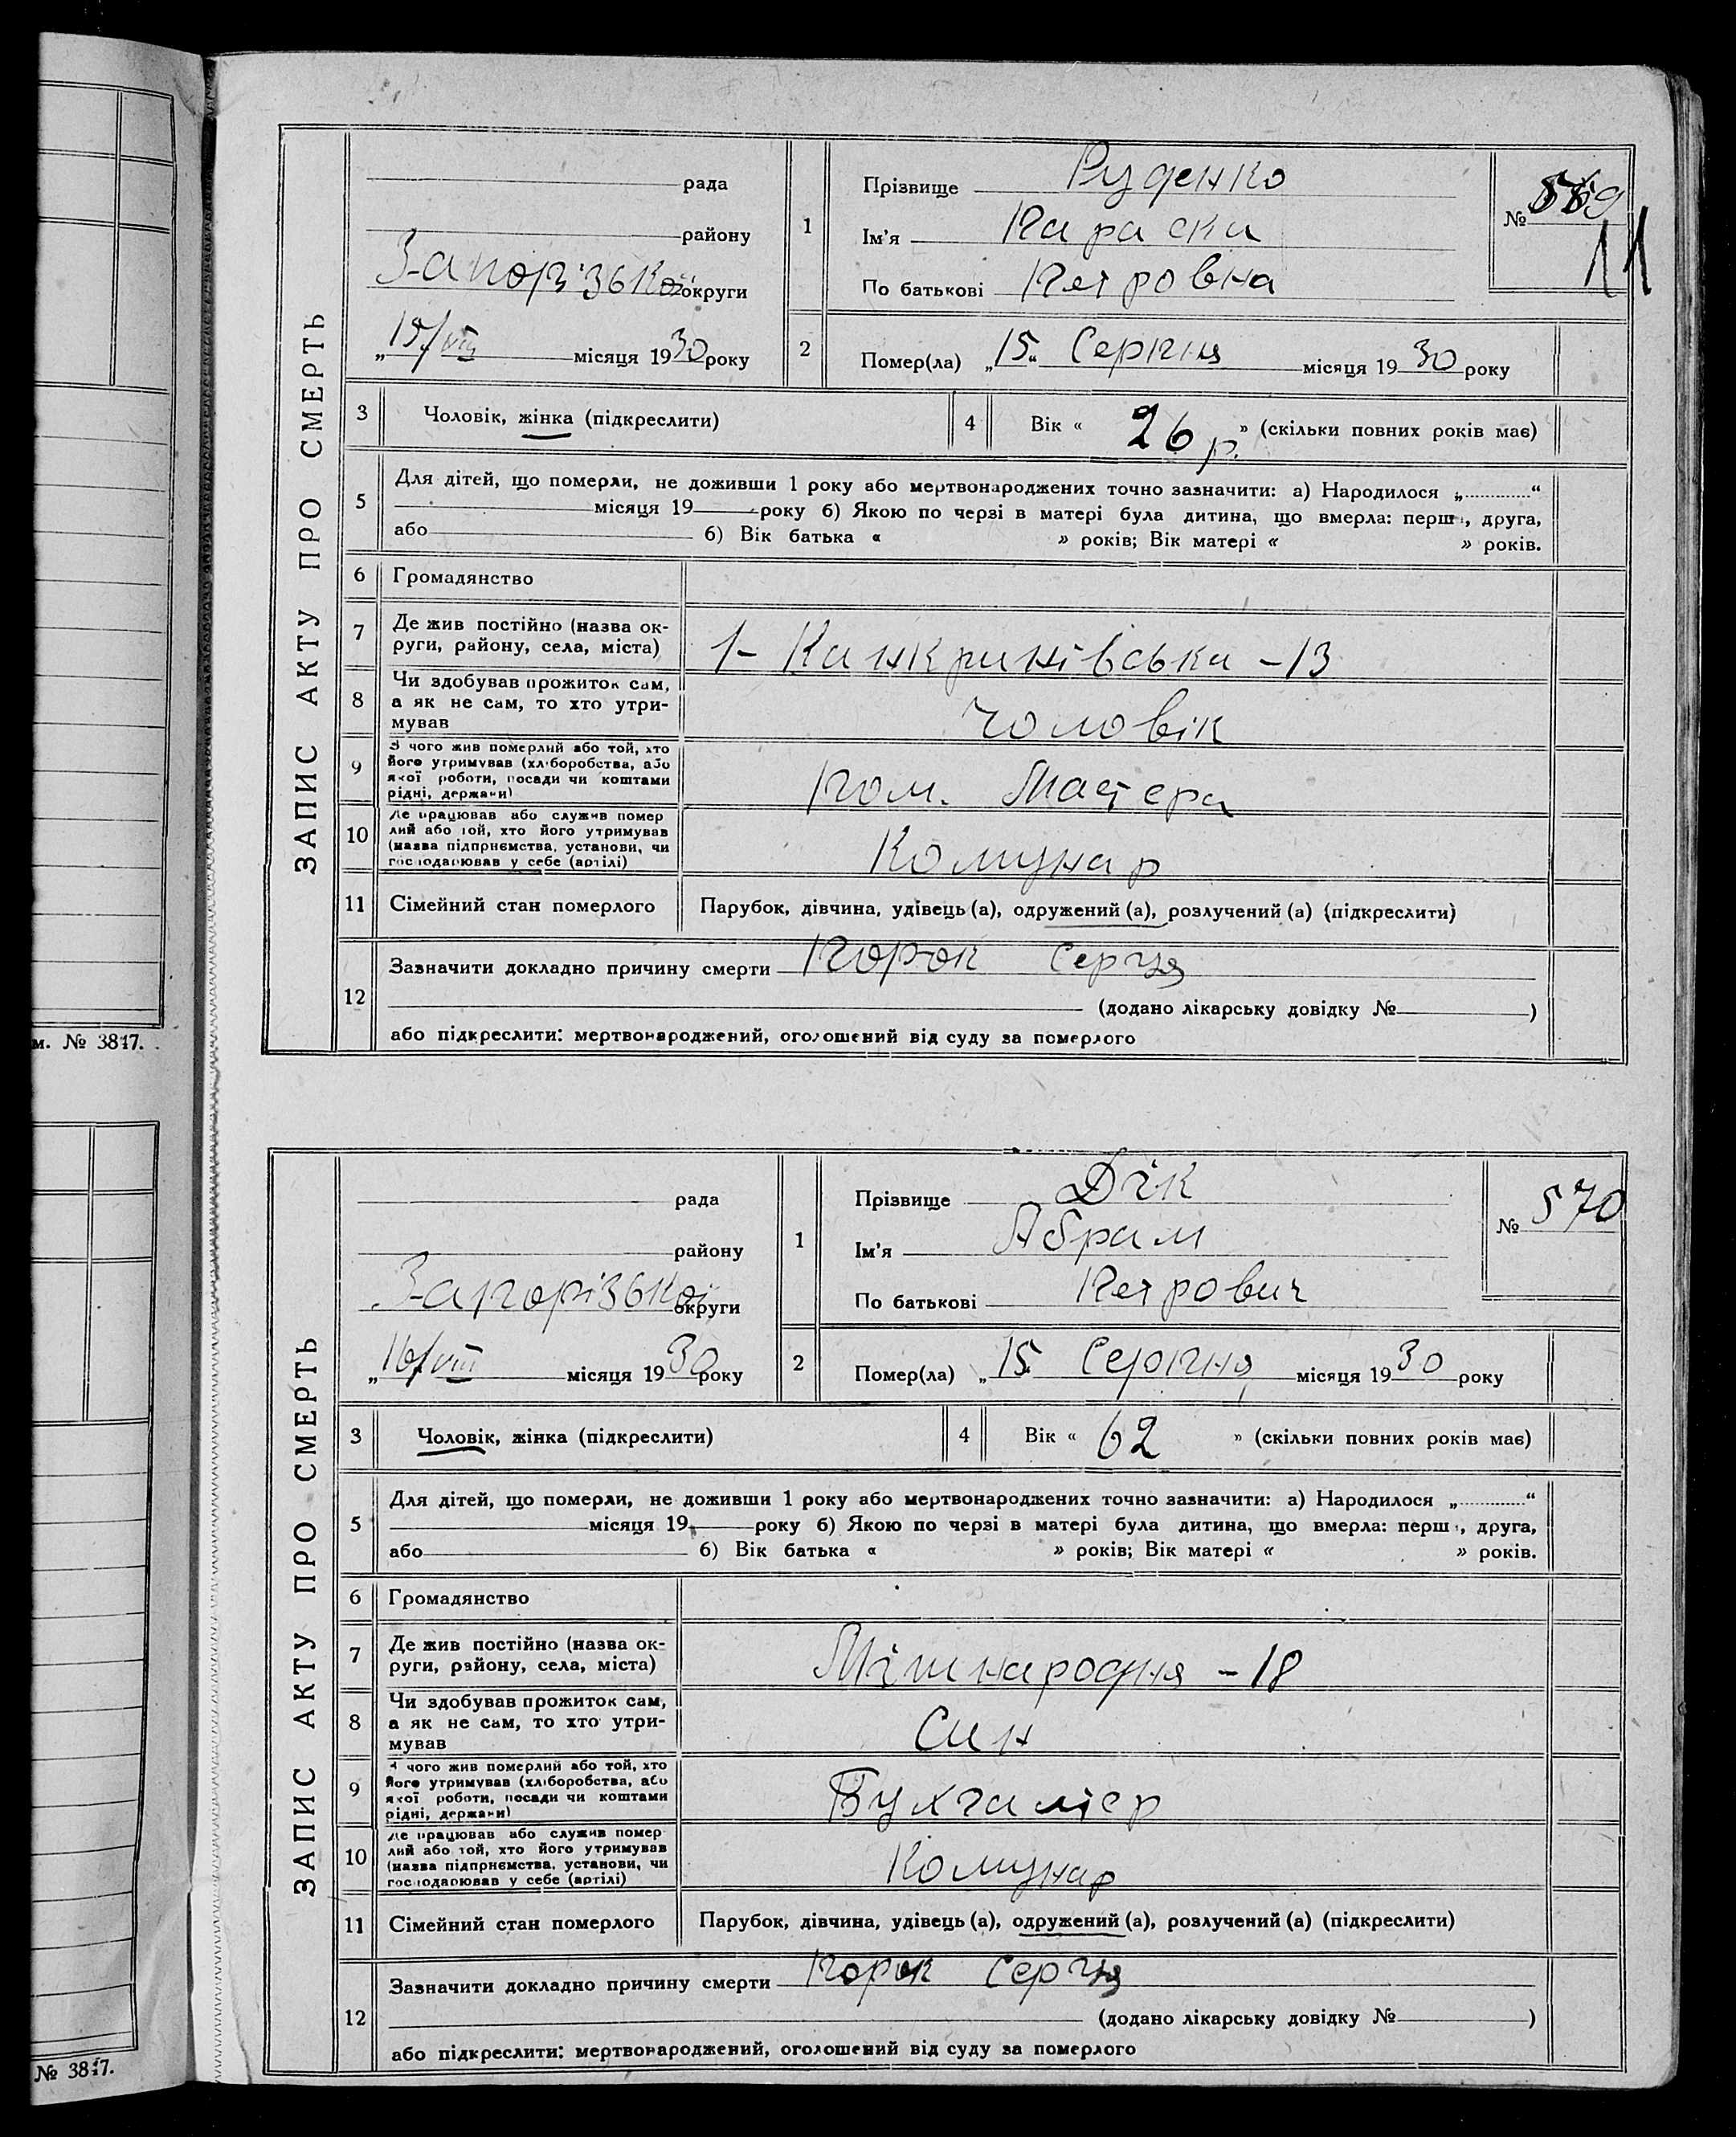 ЗАПИС АКТУ ПРО СМЕРТЬ
рада
району
Запорізької округи
„15/VIII місяця 1930 року
1
Прізвище Руденко
Ім'я Параска
По батькові Петровна
№ 569
11
2
Помер(ла) „15“ Серпня місяця 1930 року
3 Чоловік, жінка (підкреслити)
4 Вік « 26 р. » (скільки повних років має)
5
Для дітей, що померли, не доживши 1 року або мертвонароджених точно зазначити: а) Народилося „ “
місяця 19 року б) Якою по черзі в матері була дитина, що вмерла: перша, друга,
або б) Вік батька « » років; Вік матері « » років.
6 Громадянство
7
Де жив постійно (назва ок-
руги, району, села, міста)
1- Канкринівська - 13
8
Чи здобував прожиток сам,
а як не сам, то хто утри-
мував
Чоловік
9
З чого жив померлий або той, хто
його утримував (хліборобства, або
якої роботи, посади чи коштами
рідні, держави)
Пом. Мастера
10
Де працював або служив помер
лий або той, хто його утримував
(назва підприємства, установи, чи
господарював у себе (артілі)
Комунар
11 Сімейний стан померлого Парубок, дівчина, удівець (а), одружений (а), розлучений (а) (підкреслити)
12
Зазначити докладно причину смерти Порок Серця
(додано лікарську довідку № )
або підкреслити: мертвонароджений, оголошений від суду за померлого
м. № 3817.
ЗАПИС АКТУ ПРО СМЕРТЬ
рада
району
Запорізької округи
„16/VIII місяця 1930 року
1
Прізвище Дік
Ім'я Абрам
По батькові Петрович
№ 570
2
Помер(ла) „15 Серпня місяця 1930 року
3 Чоловік, жінка (підкреслити)
4 Вік « 62 » (скільки повних років має)
5
Для дітей, що померли, не доживши 1 року або мертвонароджених точно зазначити: а) Народилося „ “
місяця 19 року б) Якою по черзі в матері була дитина, що вмерла: перша, друга,
або б) Вік батька « » років; Вік матері « » років.
6 Громадянство
7
Де жив постійно (назва ок-
руги, району, села, міста)
Міжнародня - 18
8
Чи здобував прожиток сам,
а як не сам, то хто утри-
мував
Син
9
З чого жив померлий або той, хто
його утримував (хліборобства, або
якої роботи, посади чи коштами
рідні, держави)
Бухгалтер
10
Де працював або служив помер
лий або той, хто його утримував
(назва підприємства, установи, чи
господарював у себе (артілі)
Комунар
11 Сімейний стан померлого Парубок, дівчина, удівець (а), одружений (а), розлучений (а) (підкреслити)
12
Зазначити докладно причину смерти Порок Серця
(додано лікарську довідку № )
або підкреслити: мертвонароджений, оголошений від суду за померлого
№ 3817.